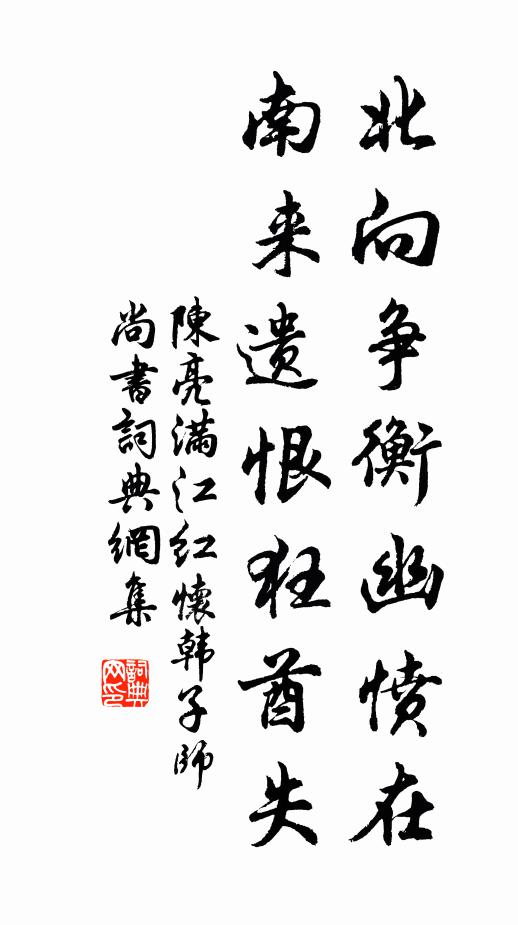 北向争衡幽愤在
南来遗恨狂酋失
陳亮满江红懷韩子師
尚書詞典網集
詞典网印